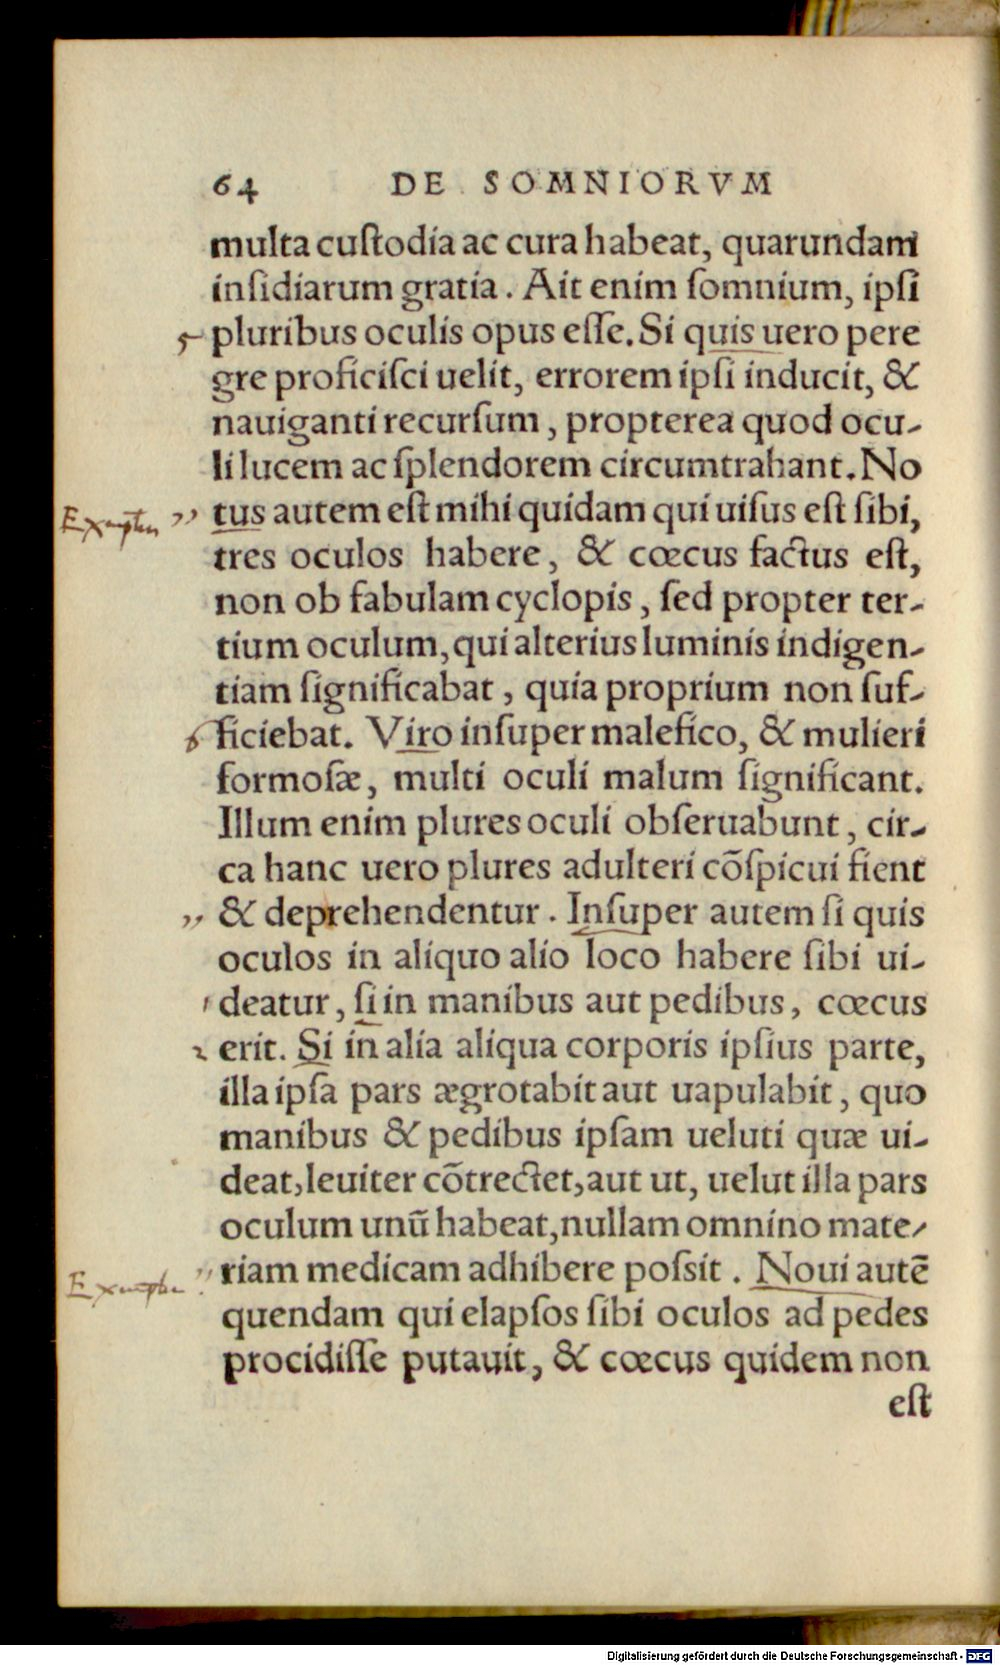 64 DE SOMNIORVM
multa cuſtodia ac cura habeat, quarundam
inſidiarum gratia. Ait enim ſomnium, ipſi
5 pluribus oculis opus eſſe. Si quis uero pere
gre proficiſci uelit, errorem ipſi inducit, &
nauiganti recurſum, propterea quod ocu-
li lucem ac ſplendorem circumtrahant. No
tus autem eſt mihi quidam qui uiſus eſt ſibi,
tres oculos habere, & cœcus factus eſt,
non ob fabulam cyclopis, ſed propter ter-
tium oculum, qui alterius luminis indigen-
tiam ſignificabat, quia proprium non ſuf-
6 ficiebat. Viro inſuper malefico, & mulieri
formoſæ, multi oculi malum ſignificant.
Illum enim plures oculi obſeruabunt, cir-
ca hanc uero plures adulteri cõſpicui fient
" & deprehendentur. Inſuper autem ſi quis
oculos in aliquo alio loco habere ſibi ui-
1 deatur, ſi in manibus aut pedibus, cœcus
2 erit. Si in alia aliqua corporis ipſius parte,
illa ipſa pars ægrotabit aut uapulabit, quo
manibus & pedibus ipſam ueluti quæ ui-
deat, leuiter cõtrectet, aut ut, uelut illa pars
oculum unũ habeat, nullam omnino mate-
riam medicam adhibere poſsit. Noui autẽ
quendam qui elapſos ſibi oculos ad pedes
procidiſſe putauit, & cœcus quidem non
eſt
Digitalisierung gefördert durch die Deutsche Forschungsgemeinschaft - DFG